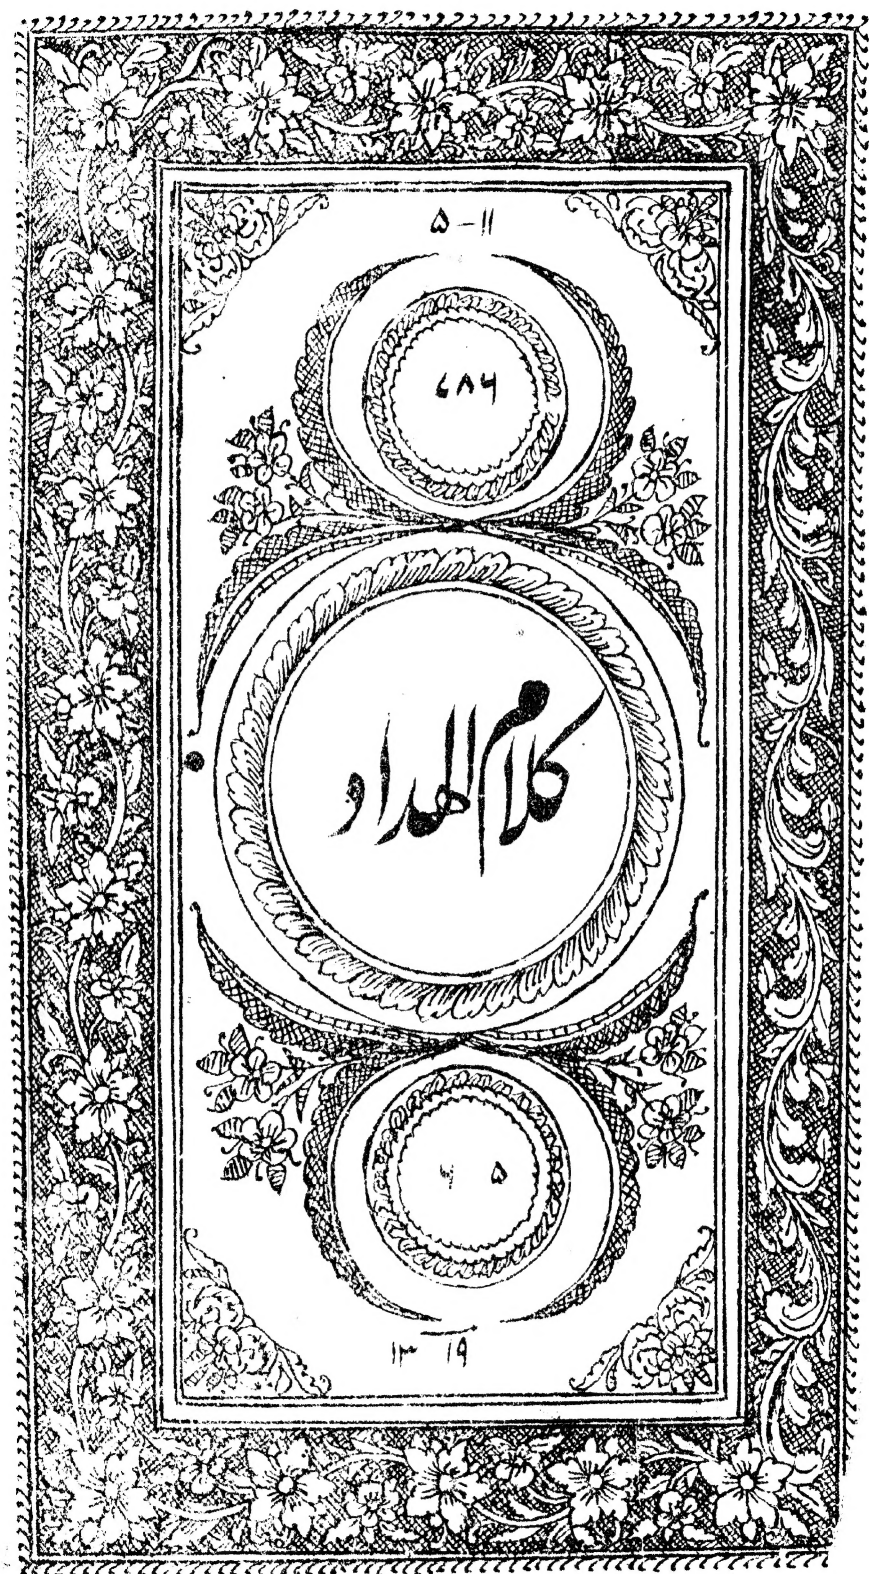 ۵ – ۱۱
۷۸۶
کلام الهداد
۶ ۵
۱۳ ۱۹